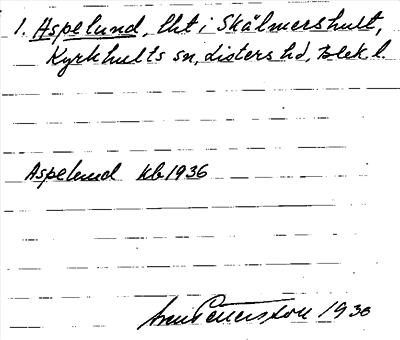 1. Aspelund, lht i Skälmershult,
Kyrkhults sn, Listers hd, Blek. l.
Aspelund kb 1936
Pettersson 1936